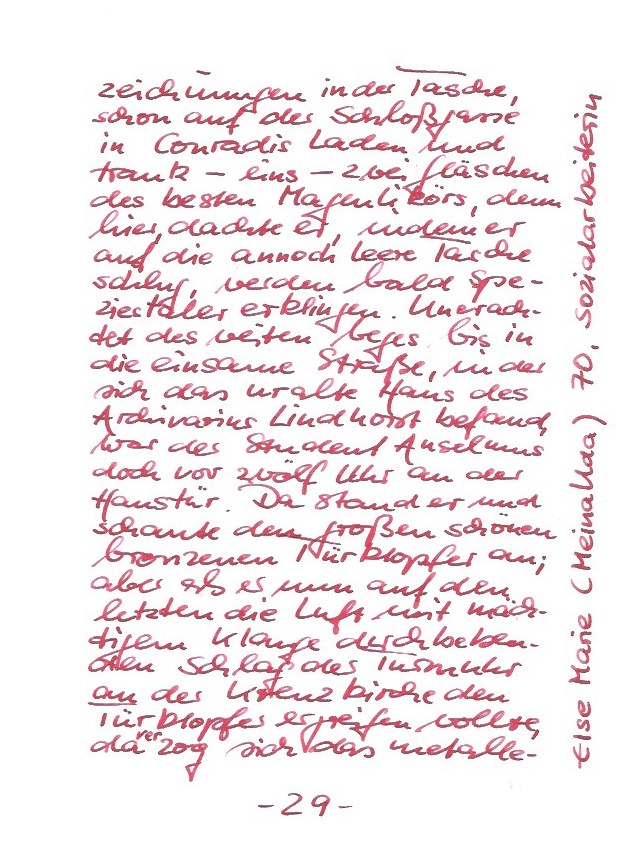 zeichnungen in der Tasche,
schon auf der Schloßgasse
in Conradis Laden und
trank - eins - zwei Gläschen
des besten Magenlikörs, denn
hier, dachte er, indem er
auf die annoch leere Tasche
schlug, werden bald Spe-
ziestaler erklingen. Unerach-
tet des weiten Weges bis in
die einsame Straße, in der
sich das uralte Haus des
Archivarius Lindhorst befand,
war der Student Anselmus
doch vor zwölf Uhr an der
Haustür. Da stand er und
schaute den großen schönen
bronzenen Türklopfer an;
aber als er nun auf den
letzten die Luft mit mäch-
tigem Klange durchbeben-
den Schlag der Turmuhr
an der Kreuzkirche den
Türklopfer ergreifen wollte,
da verzog sich das metalle-
- 29 -
Else Marie (Meinahda) 70, Sozialarbeiterin